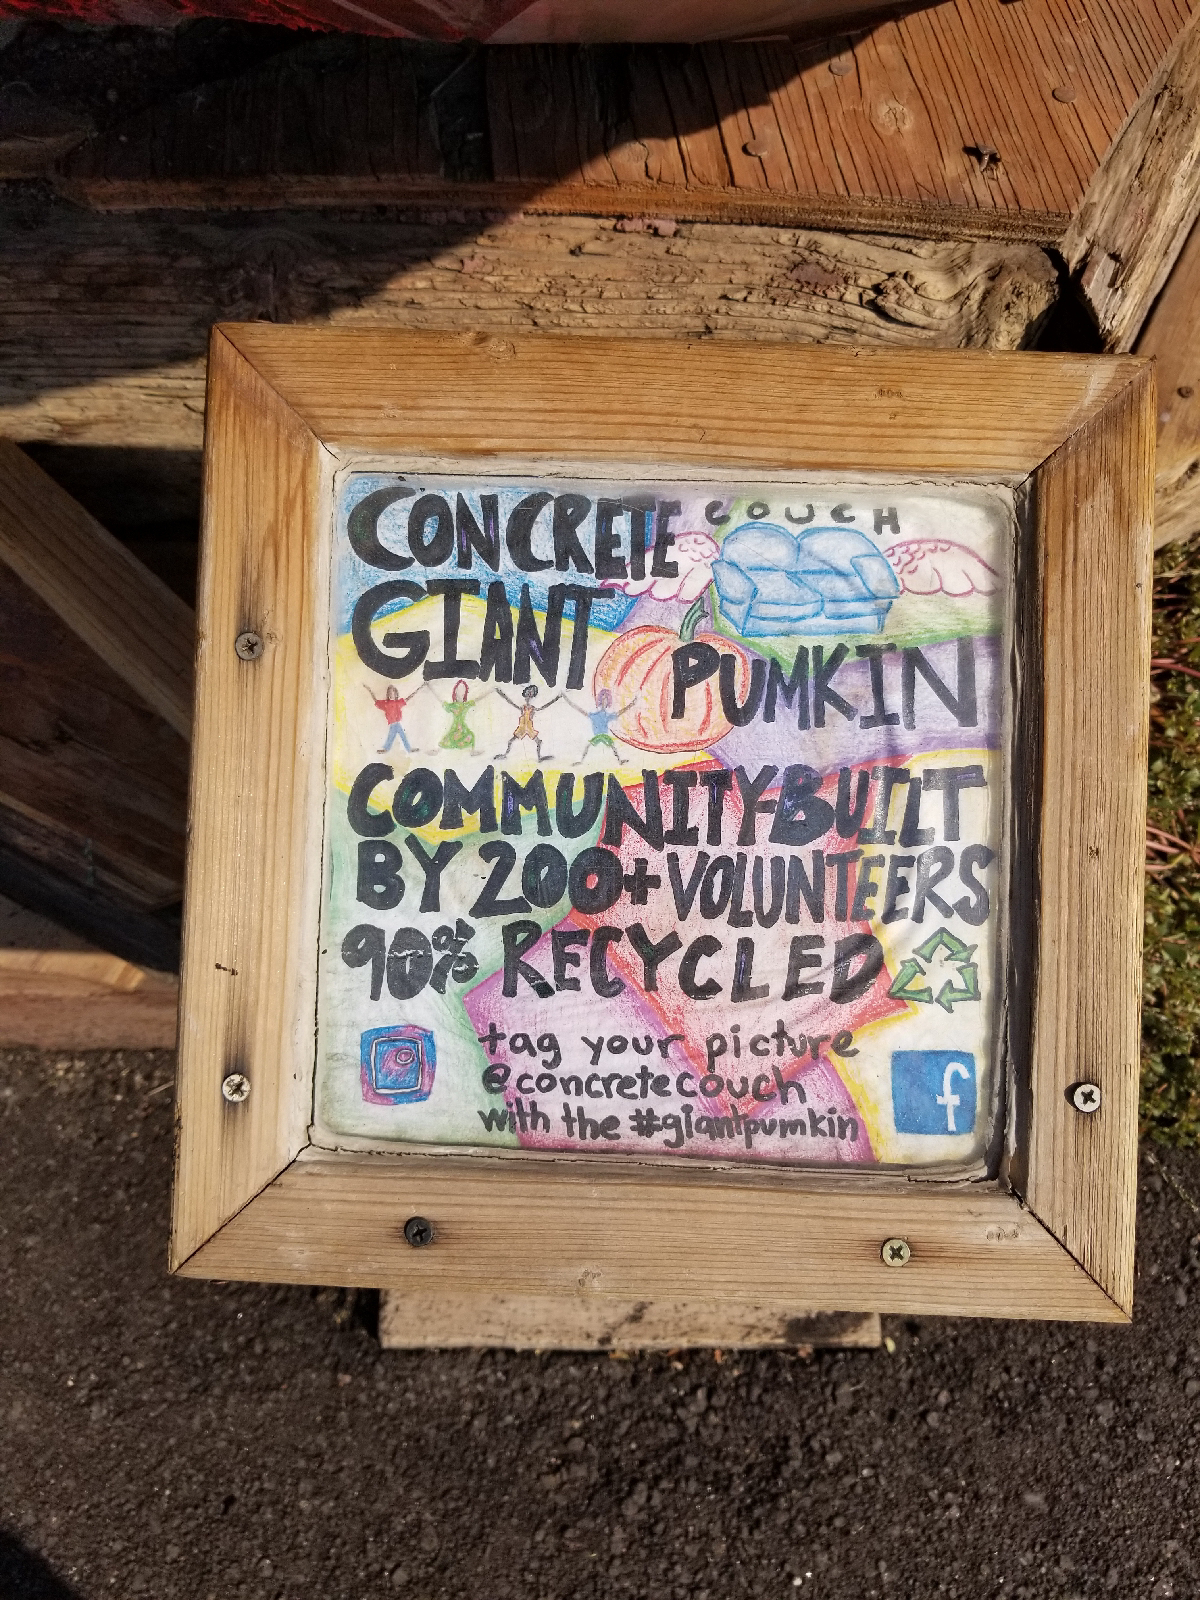 CONCRETE
COUCH
GIANT
PUMKIN
COMMUNITY-BUILT
BY 200+ VOLUNTEERS
90% RECYCLED
tag your picture
@concretecouch
with the #giantpumkin
f